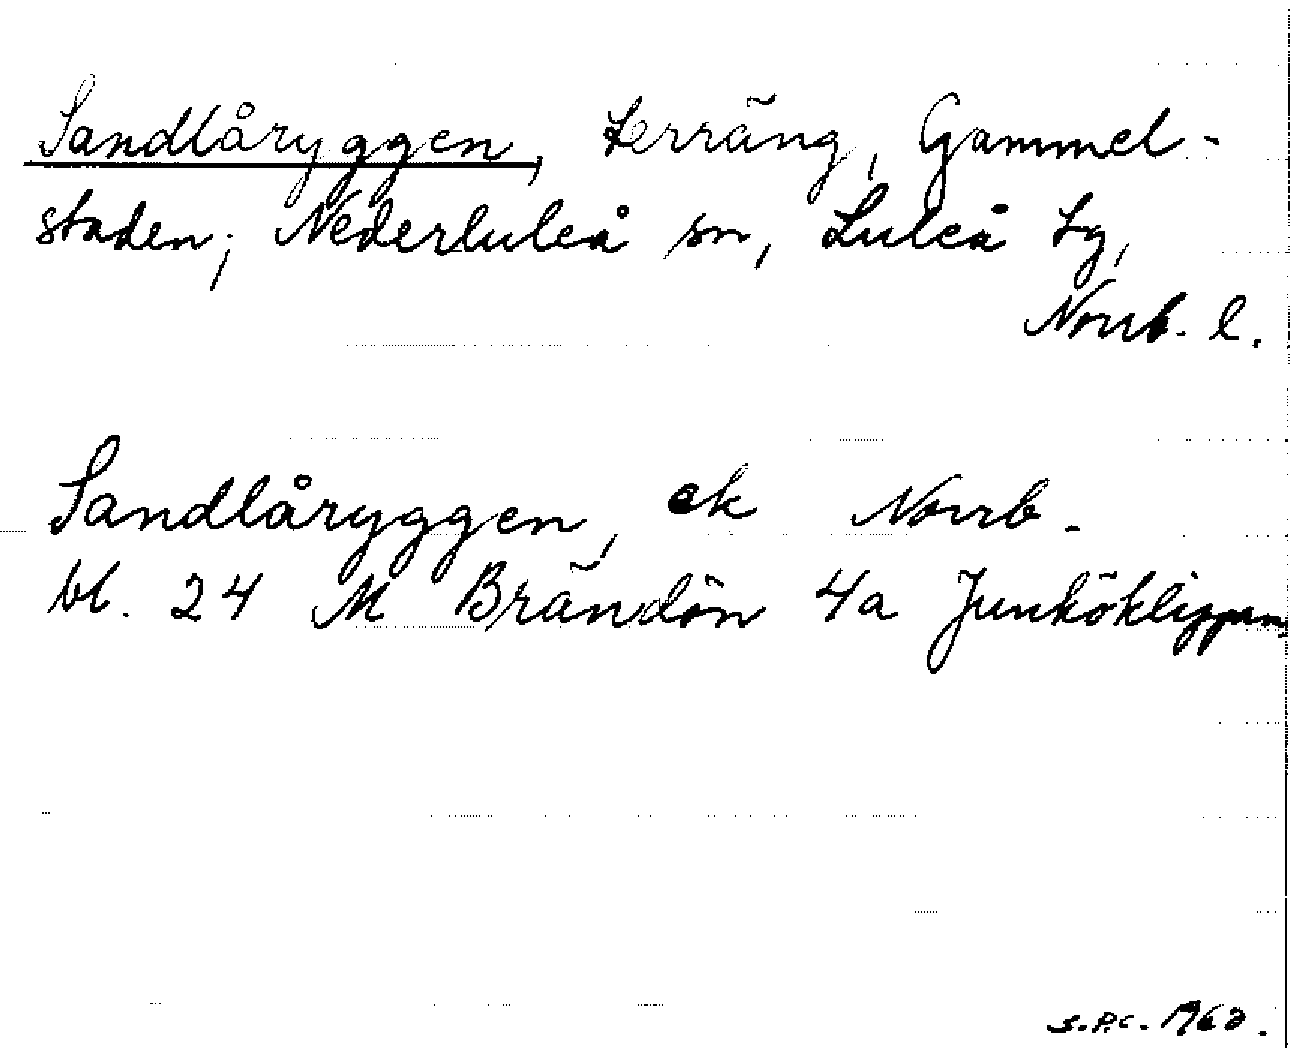 Sandlåryggen, terräng, Gammel-
staden, Nederluleå sn, Luleå tg,
Norrb. l.
Sandlåryggen, ek Norrb.
bl. 24 M Brändön 4a Junköklippan
S.P.C. 1960.